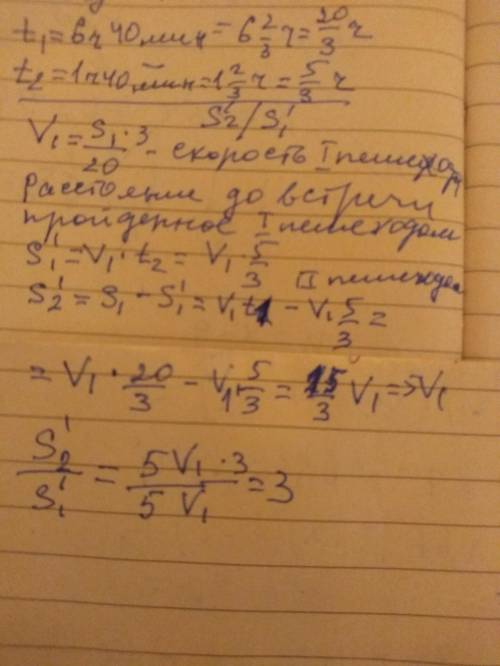 t₁ = 6ч 40мин = 6 2/3 ч = 20/3 ч
t₂ = 1ч 40мин = 1 2/3 ч = 5/3 ч
S₂'/S₁'
V₁ = S₁·3/20 - скорость I пешехода
Расстояние до встречи
пройденное I пешеходом
S₁' = V₁·t₂ = V₁·5/3
II пешеходом
S₂' = S₁ - S₁' = V₁t₁ - V₁ 5/3 =
= V₁·20/3 - V₁·5/3 = 15/3 V₁ =>
S₂'/S₁' = 5V₁·3/5V₁ = 3